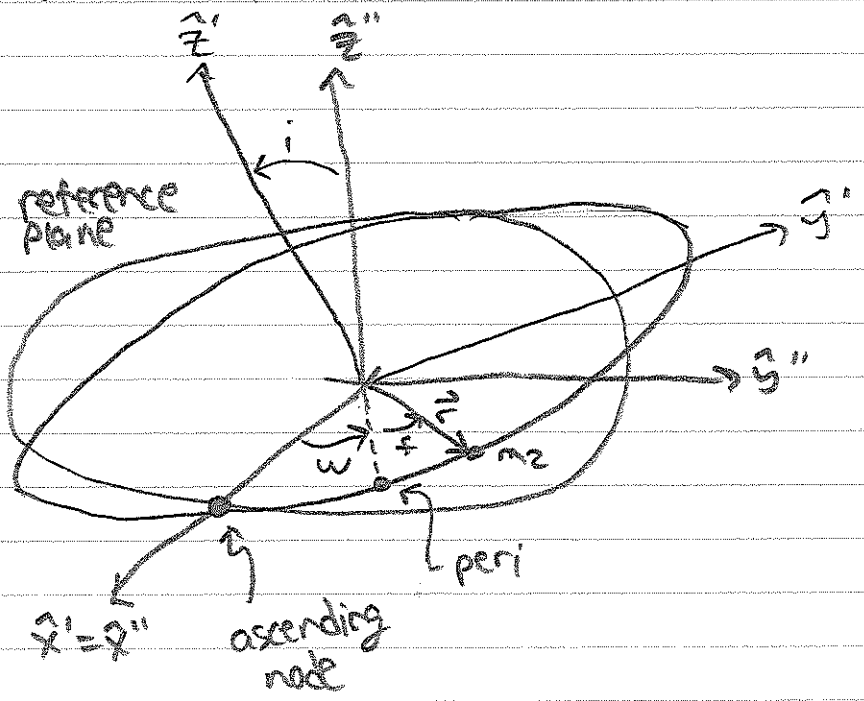 ẑ' ẑ''
i
reference
plane
ŷ'
ŷ''
r⃗
ω f m2
peri
x̂'=x̂'' ascending
node